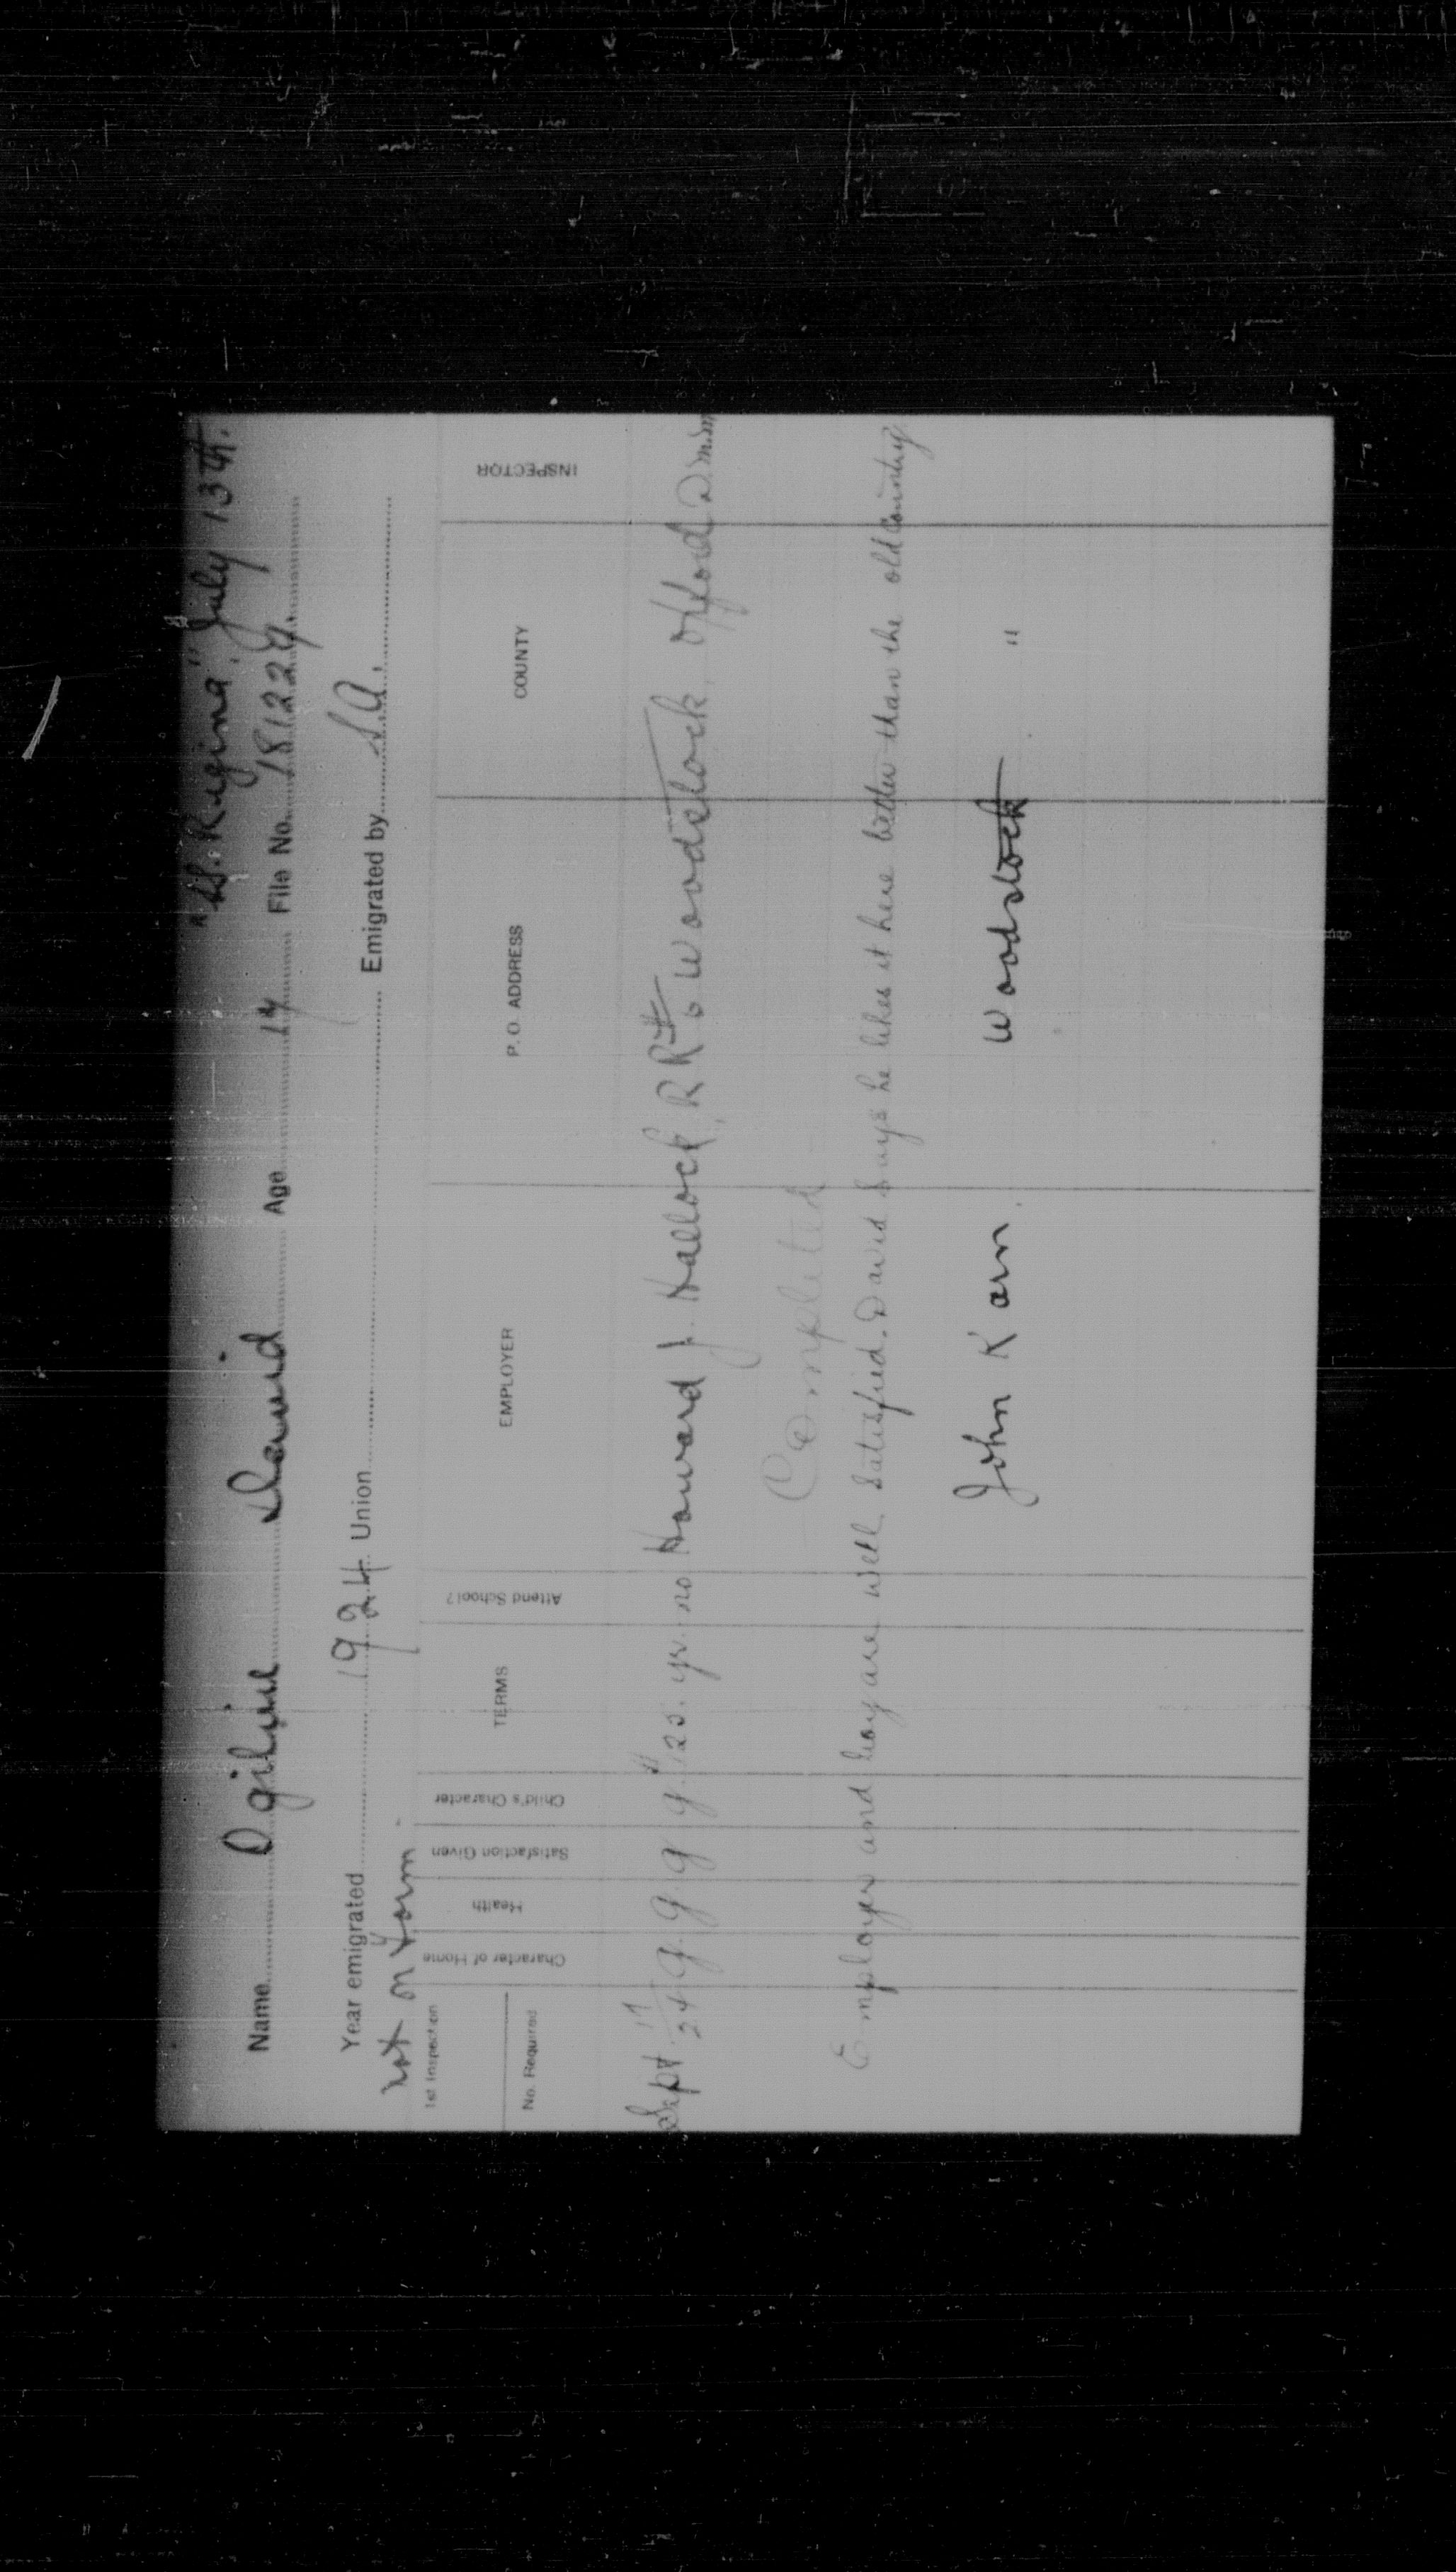 "SS. Regina", July 13th.
Name Ogilvie David Age 14 File No. 181229.
Year emigrated 1924 Union Emigrated by S.A.
not on Form
1st Inspection
No. Required
Character of Home
Health
Satisfaction Given
Child's Character
TERMS
Attend School?
EMPLOYER
P. O. ADDRESS
COUNTY
INSPECTOR
Sept 17/24 g. g. g g. $125. yr. no Howard J. Hallock, R R # 6 Woodstock, Oxford D.M.M
Completed
Employer and boy are well satisfied. David says he likes it here better than the old country
John Karn. Woodstock "